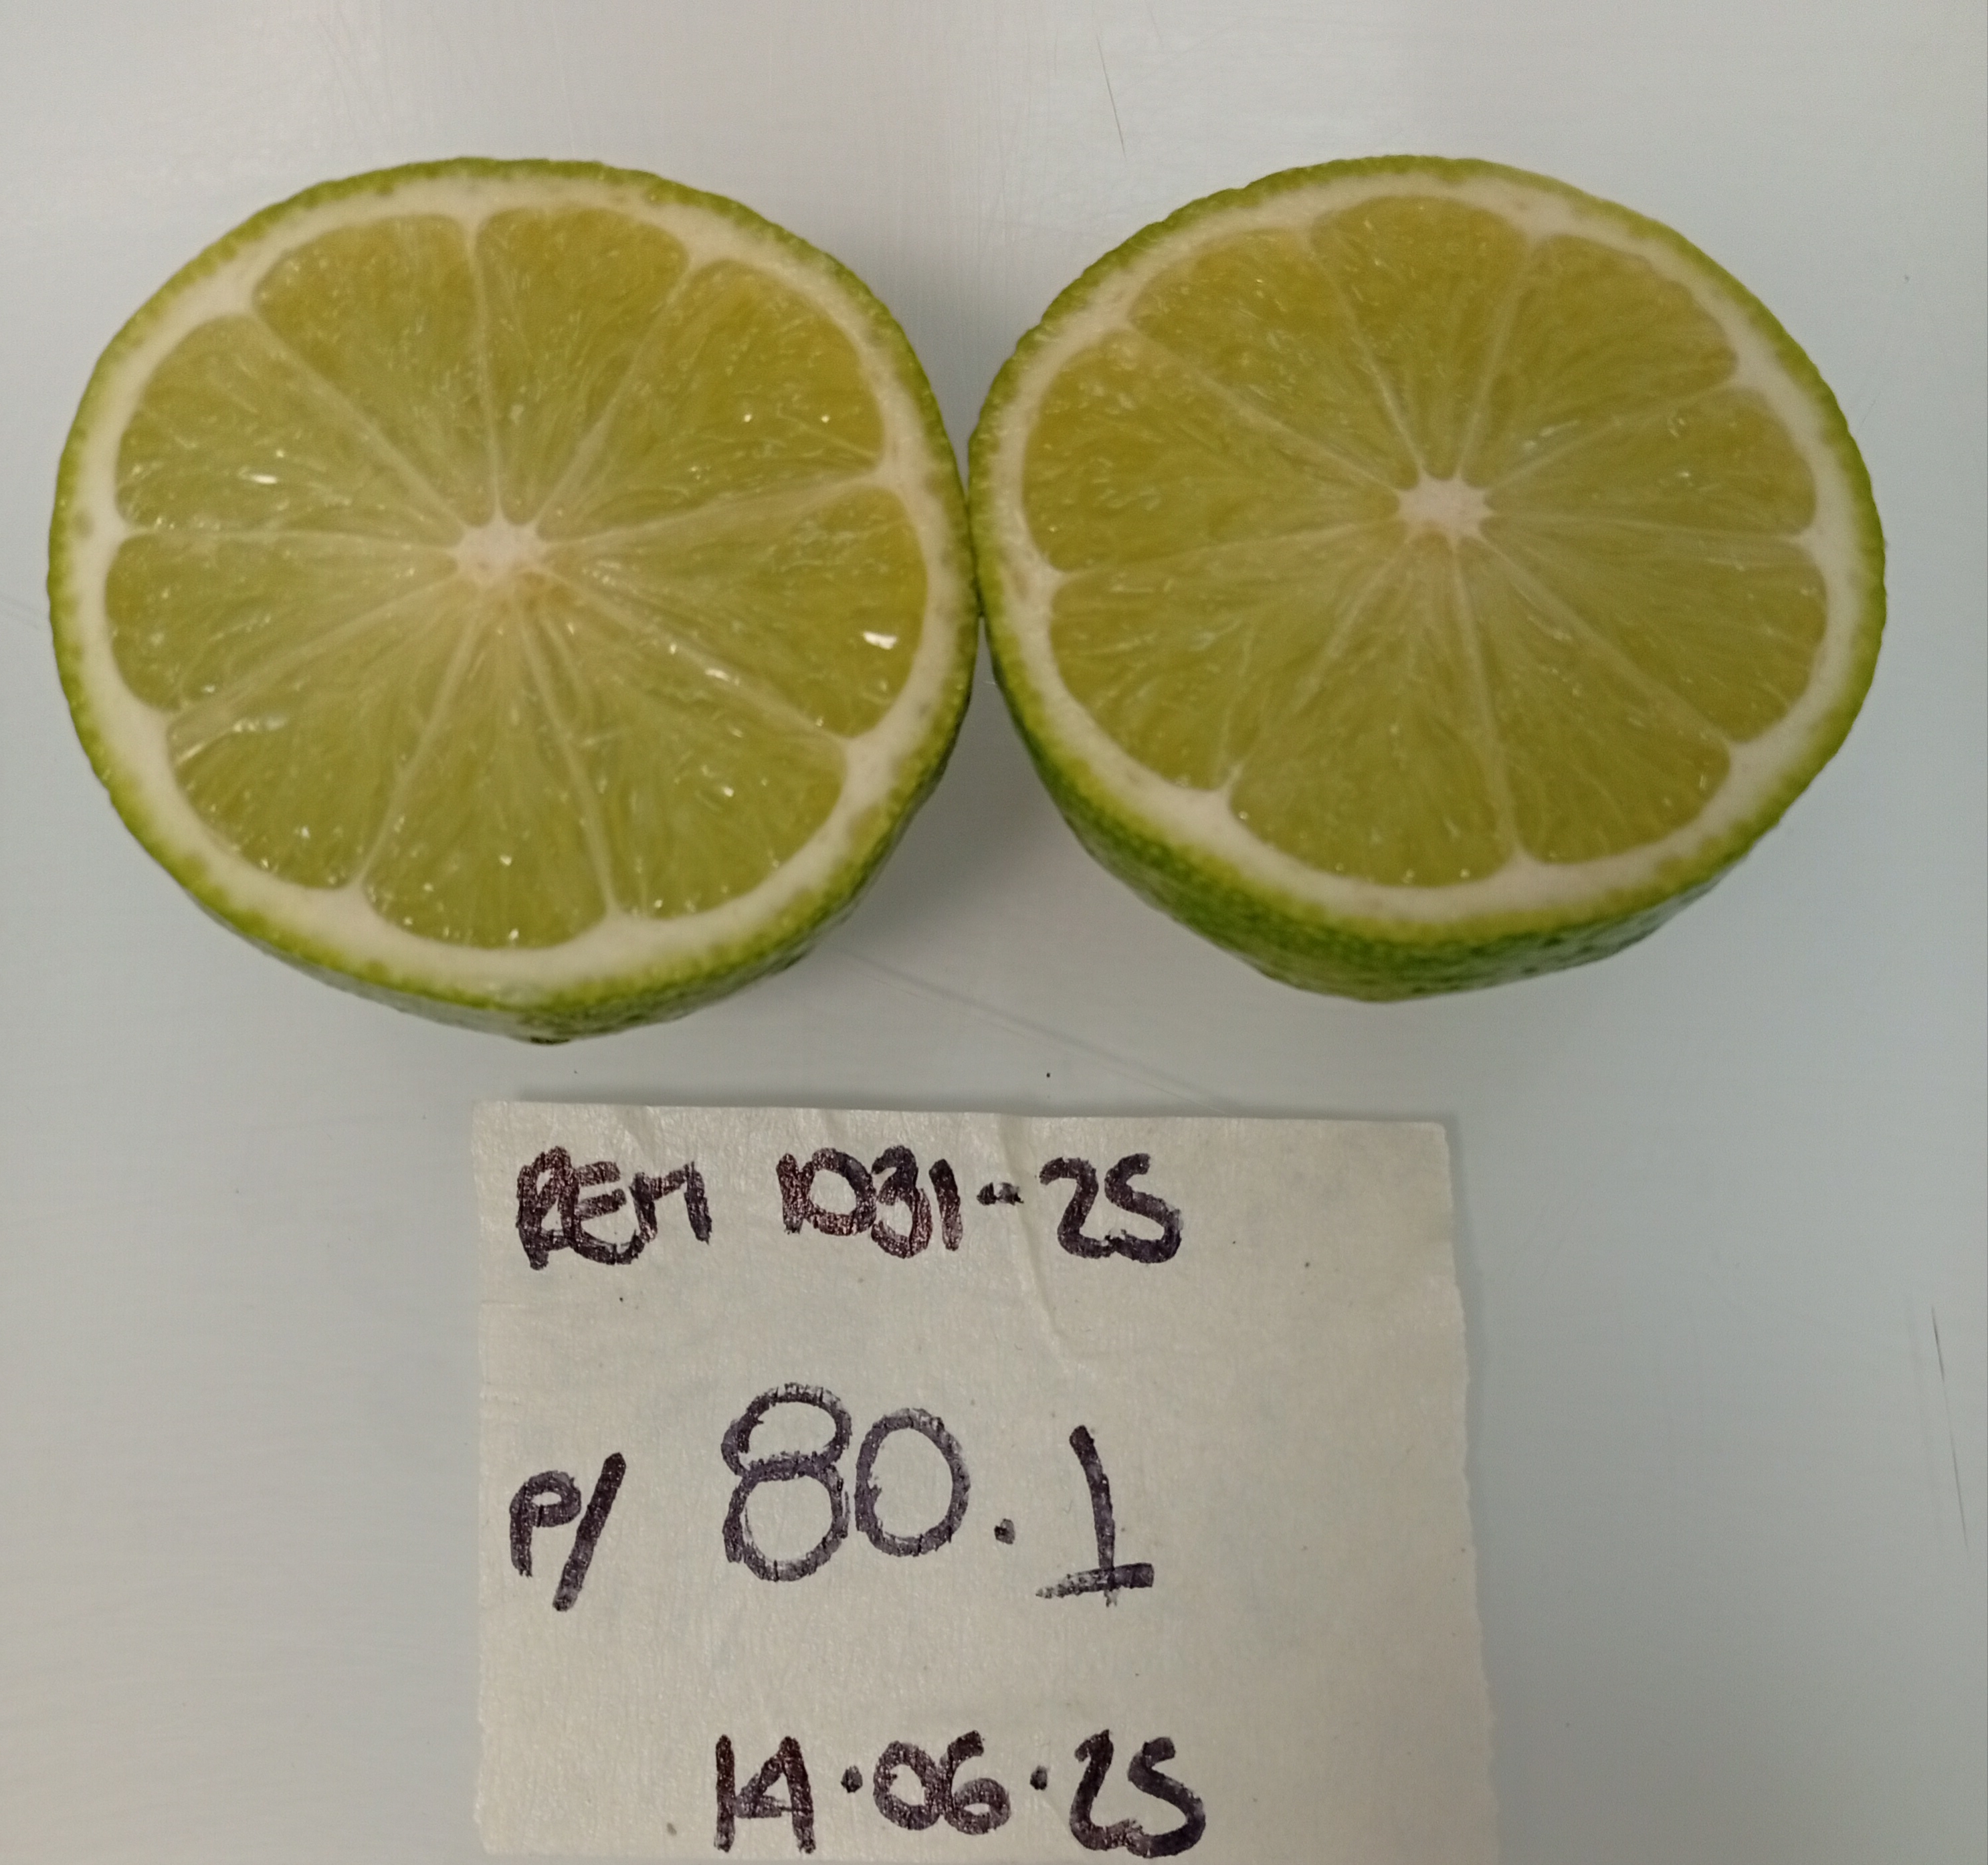 REM 1031-25
P/ 80.1
14.06.25